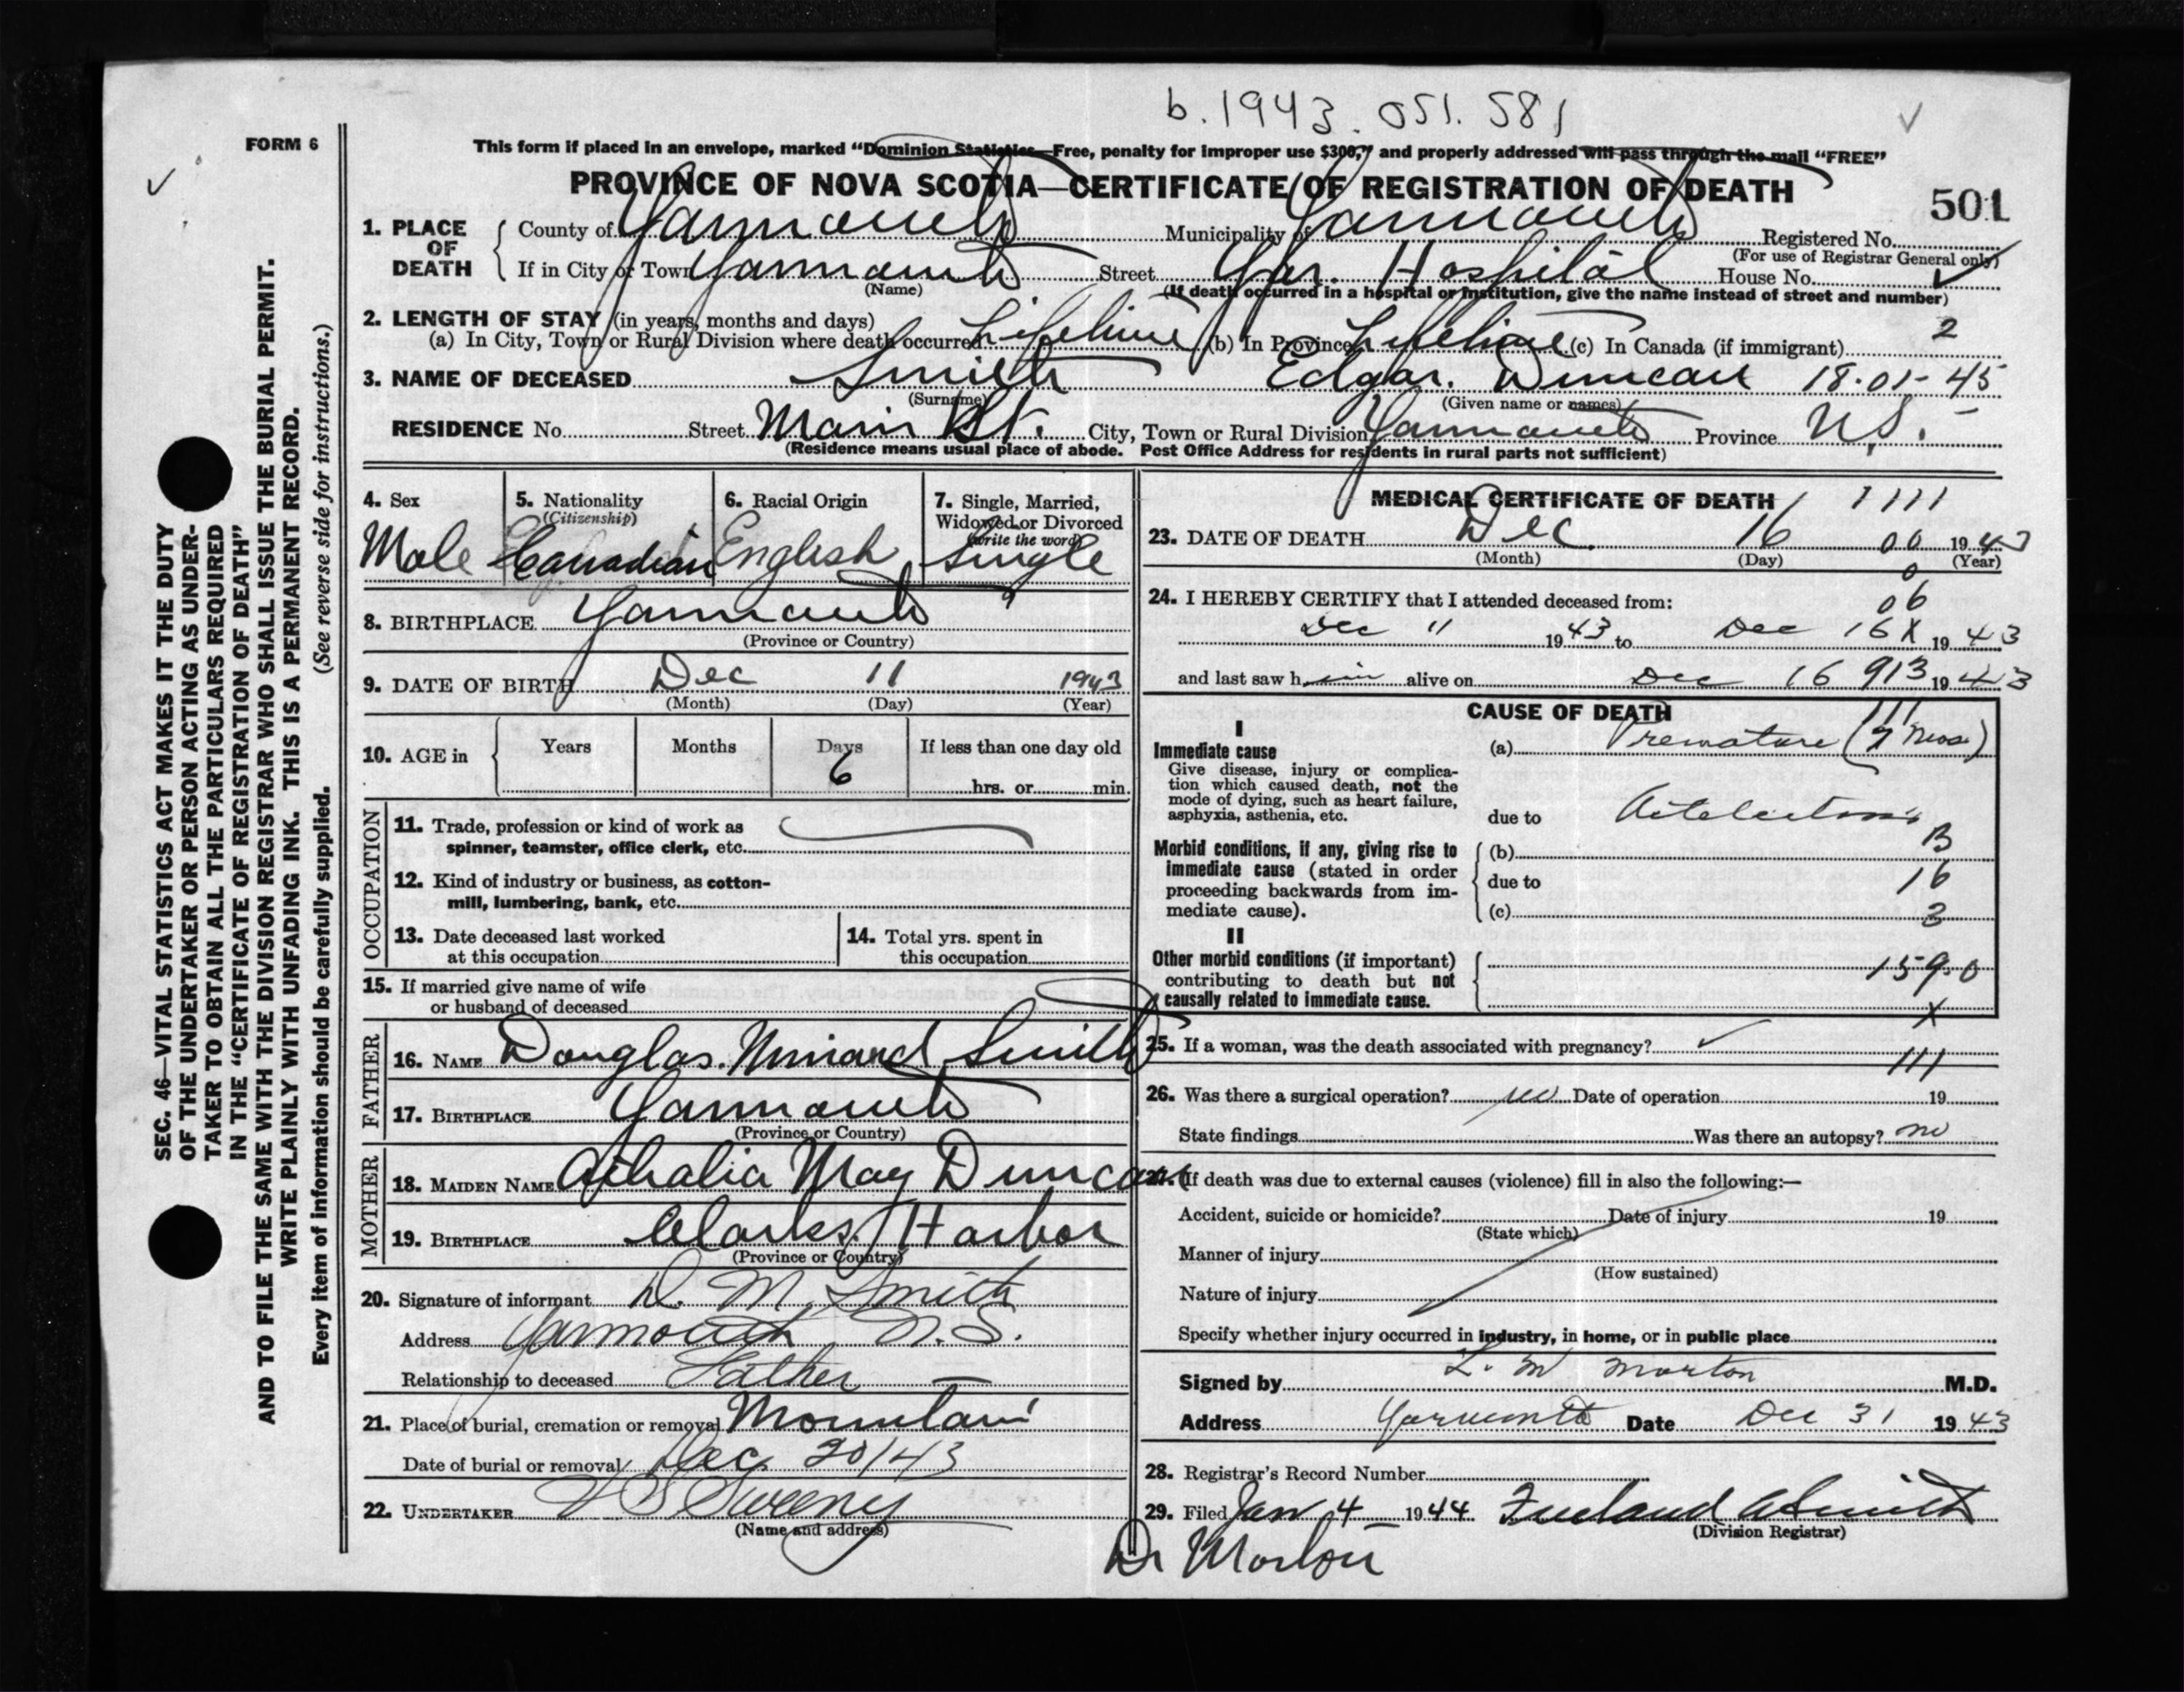 b. 1943. 051. 581
FORM 6
This form if placed in an envelope, marked "Dominion Statistics—Free, penalty for improper use $300," and properly addressed will pass through the mail "FREE"
PROVINCE OF NOVA SCOTIA—CERTIFICATE OF REGISTRATION OF DEATH
501
1. PLACE OF DEATH
County of Yarmouth Municipality of Yarmouth Registered No.
(For use of Registrar General only)
If in City or Town Yarmouth Street Yar. Hospital House No.
(Name)
(If death occurred in a hospital or institution, give the name instead of street and number)
2. LENGTH OF STAY (in years, months and days)
(a) In City, Town or Rural Division where death occurred Lifetime (b) In Province Lifetime (c) In Canada (if immigrant) 2
3. NAME OF DECEASED Smith Edgar. Duncan 18-01-45
(Surname) (Given name or names)
RESIDENCE No. Street Main St. City, Town or Rural Division Yarmouth Province N.S.
(Residence means usual place of abode. Post Office Address for residents in rural parts not sufficient)
SEC. 46—VITAL STATISTICS ACT MAKES IT THE DUTY
OF THE UNDERTAKER OR PERSON ACTING AS UNDER-
TAKER TO OBTAIN ALL THE PARTICULARS REQUIRED
IN THE "CERTIFICATE OF REGISTRATION OF DEATH"
AND TO FILE THE SAME WITH THE DIVISION REGISTRAR WHO SHALL ISSUE THE BURIAL PERMIT.
WRITE PLAINLY WITH UNFADING INK. THIS IS A PERMANENT RECORD.
Every item of information should be carefully supplied. (See reverse side for instructions.)
4. Sex
Male
5. Nationality
(Citizenship)
Canadian
6. Racial Origin
English
7. Single, Married,
Widowed or Divorced
(write the word)
Single
8. BIRTHPLACE Yarmouth
(Province or Country)
9. DATE OF BIRTH Dec 11 1943
(Month) (Day) (Year)
10. AGE in Years Months Days If less than one day old
6
hrs. or min.
OCCUPATION
11. Trade, profession or kind of work as
spinner, teamster, office clerk, etc.
12. Kind of industry or business, as cotton-
mill, lumbering, bank, etc.
13. Date deceased last worked
at this occupation
14. Total yrs. spent in
this occupation
15. If married give name of wife
or husband of deceased
FATHER
16. NAME Douglas. Minard Smith
17. BIRTHPLACE Yarmouth
(Province or Country)
MOTHER
18. MAIDEN NAME Athalia May Duncan
19. BIRTHPLACE Clarks Harbor
(Province or Country)
20. Signature of informant D. M. Smith
Address Yarmouth N.S.
Relationship to deceased Father
21. Place of burial, cremation or removal Mountain
Date of burial or removal Dec 20/43
22. UNDERTAKER Sweeny
(Name and address)
MEDICAL CERTIFICATE OF DEATH
1111
23. DATE OF DEATH Dec. 16 00 1943
(Month) (Day) (Year)
0
24. I HEREBY CERTIFY that I attended deceased from: 06
Dec 11 1943 to Dec 16 X 1943
and last saw him alive on Dec 16 913 1943
CAUSE OF DEATH
111
I
Immediate cause
Give disease, injury or complica-
tion which caused death, not the
mode of dying, such as heart failure,
asphyxia, asthenia, etc.
(a) Premature (7 mos.)
due to Atelectasis
Morbid conditions, if any, giving rise to
immediate cause (stated in order
proceeding backwards from im-
mediate cause).
(b) B
due to 16
(c) 3
II
Other morbid conditions (if important)
contributing to death but not
causally related to immediate cause.
159.0
X
25. If a woman, was the death associated with pregnancy?
111
26. Was there a surgical operation? no Date of operation 19
State findings Was there an autopsy? no
27. If death was due to external causes (violence) fill in also the following:—
Accident, suicide or homicide? Date of injury 19
(State which)
Manner of injury
(How sustained)
Nature of injury
Specify whether injury occurred in industry, in home, or in public place
Signed by L. M Morton M.D.
Address Yarmouth Date Dec 31 1943
28. Registrar's Record Number
29. Filed Jan 4 1944 Freeland A Smith
(Division Registrar)
Dr Morton